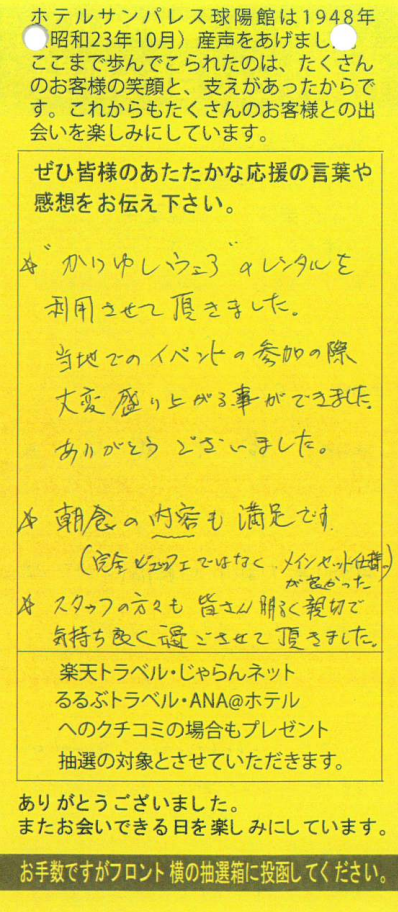 ホテルサンパレス球陽館は1948年
昭和23年10月）産声をあげまし
ここまで歩んでこられたのは、たくさん
のお客様の笑顔と、支えがあったからで
す。これからもたくさんのお客様との出
会いを楽しみにしています。
ぜひ皆様のあたたかな応援の言葉や
感想をお伝え下さい。
☆"かりゆしウェア"のレンタルを
利用させて頂きました。
当地でのイベントの参加の際
大変盛り上がる事ができました。
ありがとうございました。
☆ 朝食の内容も満足です
(完全ビュッフェではなく、メインセット仕様
が良かった)
☆ スタッフの方々も皆さん明るく親切で
気持ち良く過ごさせて頂きました。
楽天トラベル・じゃらんネット
るるぶトラベル・ANA@ホテル
へのクチコミの場合もプレゼント
抽選の対象とさせていただきます。
ありがとうございました。
またお会いできる日を楽しみにしています。
お手数ですがフロント横の抽選箱に投函してください。